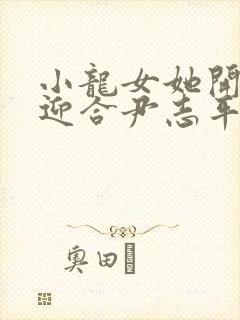 小龍女她開
迎合尹志平
奧田